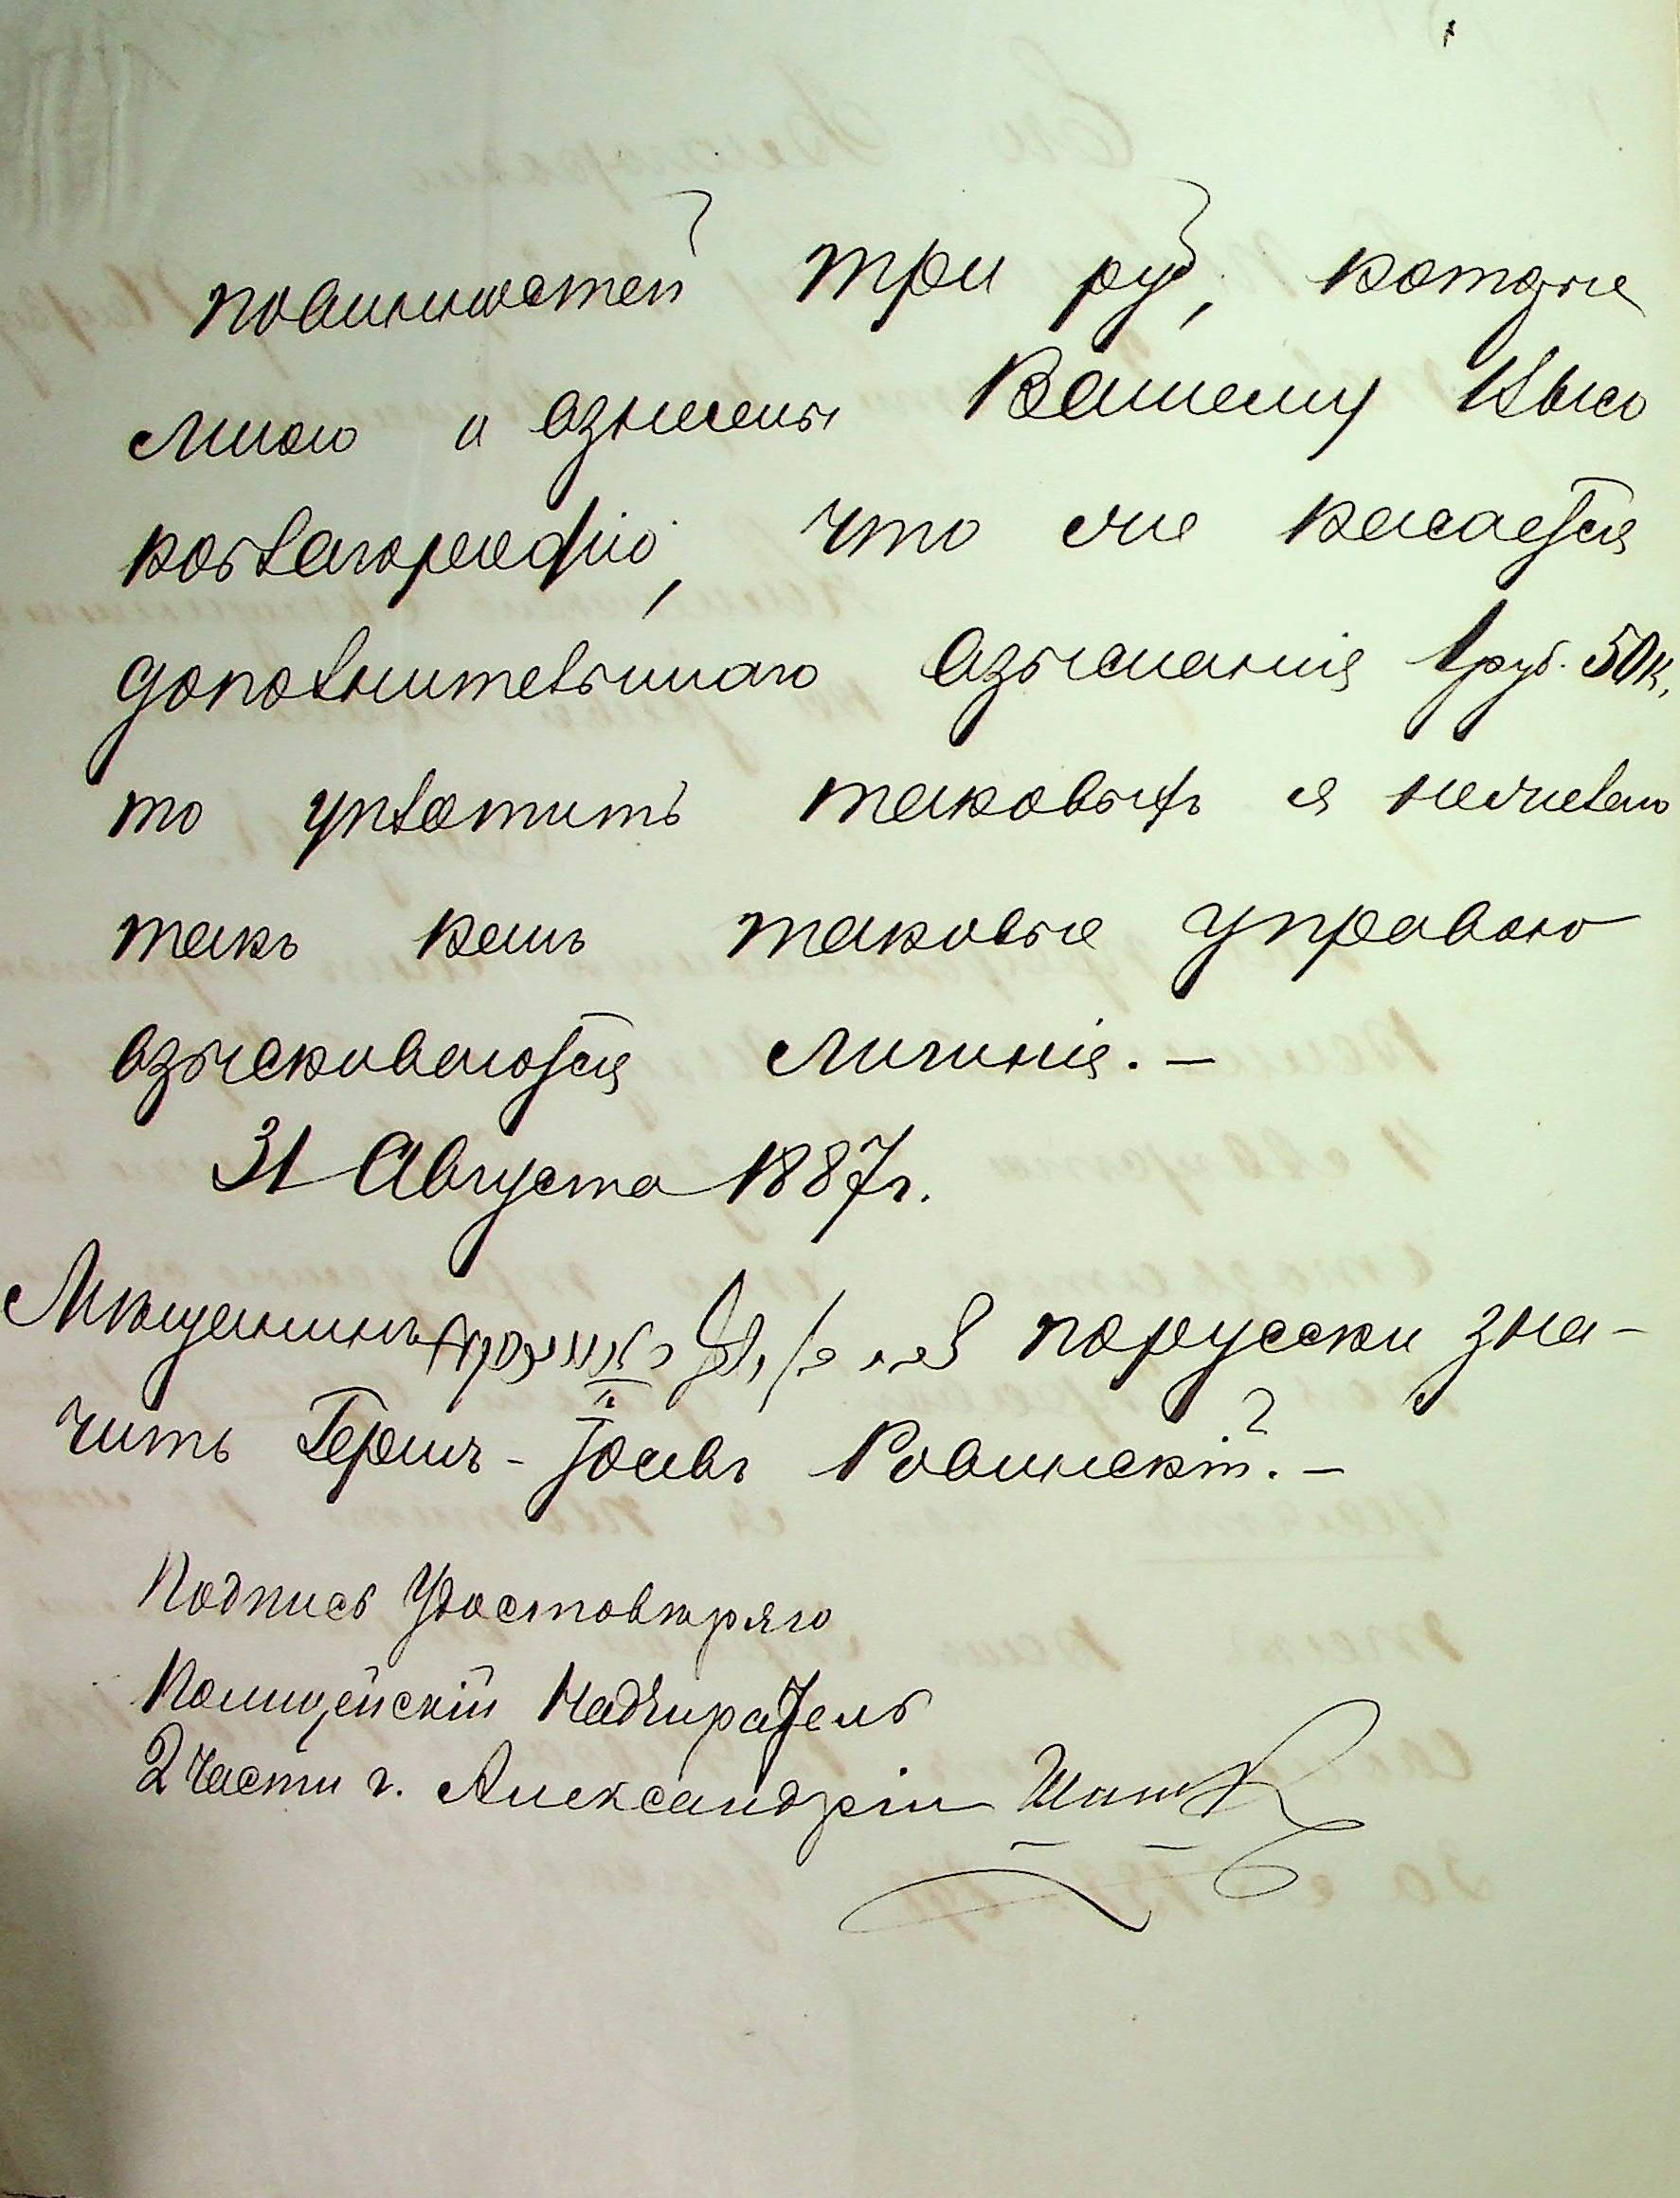 повинностей три руб, которые
мною и взнесены Вашему Высо
коблагородію, что же касается
дополнительнаго взысканія 1 руб. 50 к,
то уплатить таковыхъ я нежелаю
такъ какъ таковые управою
взыскиваются лишнія. —
31 Августа 1887 г.
Мѣщанинъ порусски зна-
чить Гершъ-Іосивъ Ровинскій. —
Подпись Удостовѣряю
Полицейскій Надзиратель
2 части г. Александріи